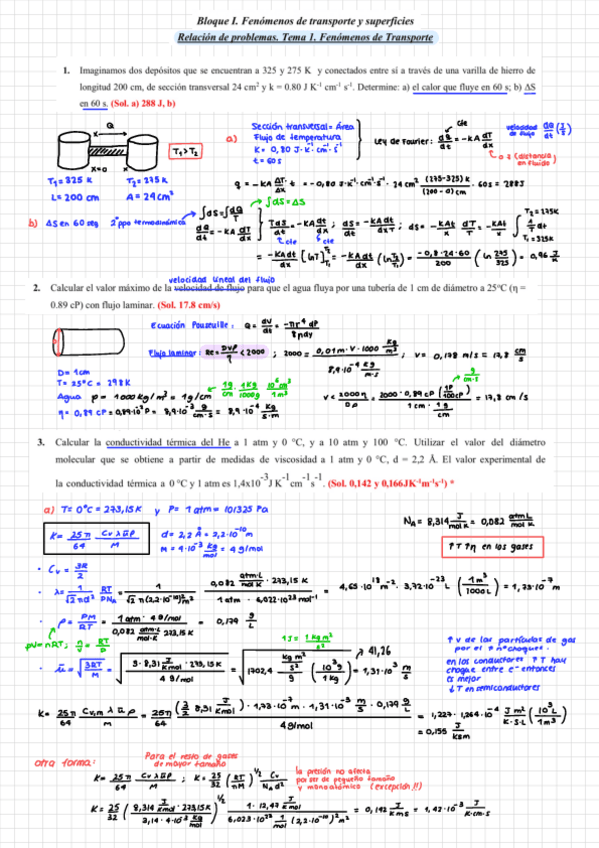 Bloque I. Fenómenos de transporte y superficies
Relación de problemas. Tema 1. Fenómenos de Transporte
1. Imaginamos dos depósitos que se encuentran a 325 y 275 K y conectados entre sí a través de una varilla de hierro de
longitud 200 cm, de sección transversal 24 cm² y k = 0.80 J K⁻¹ cm⁻¹ s⁻¹. Determine: a) el calor que fluye en 60 s; b) ΔS
en 60 s. (Sol. a) 288 J, b)
Q
x
x=0
T₁>T₂
T₁ = 325 K T₂ = 275K
L = 200 cm A = 24cm²
a) Sección transversal = Área
Flujo de temperatura
K = 0,80 J·K⁻¹·cm⁻¹·s⁻¹
t = 60s
Ley de Fourier: dQ/dt = -KA dT/dx
cte
velocidad de flujo dQ/dt (J/s)
a z (distancia en fluido)
q = -KA ΔT/Δx · t = -0,80 J·K⁻¹·cm⁻¹·s⁻¹ · 24 cm² (275-325)K / (200-0)cm · 60s = 288J
b) ΔS en 60 seg 2º ppo termodinámica
∫dS = ∫dQ/T
∫dS = ΔS
dQ/dt = -KA dT/dx
TdS/dt = -KA dT/dx ; dS = -KAdt/dx dT/T ; dS = -KAt/dx dT/T = -KAt/dx ∫ dT/T
T₂ = 275K
T₁ = 325K
cte cte
= -KAdt/dx [lnT] T₂ T₁ = -KAt/dx (ln T₂/T₁) = -0,8·24·60/200 (ln 275/325) = 0,96 J/K
velocidad lineal del flujo
2. Calcular el valor máximo de la velocidad de flujo para que el agua fluya por una tubería de 1 cm de diámetro a 25°C (η =
0.89 cP) con flujo laminar. (Sol. 17.8 cm/s)
Ecuación Pouseuille: Q = dV/dt = -πr⁴ dP / 8η dy
Flujo laminar: Re = DVρ/η < 2000 ; 2000 = 0,01m·V·1000 kg/m³ / 8,9·10⁻⁴ kg/m·s ; v = 0,178 m/s = 17,8 cm/s
D = 1cm
T = 25°C = 298K
Agua ρ = 1000 kg/m³ = 1g/cm³
η = 0,89 cP = 0,89·10⁻² P = 8,9·10⁻³ g/cm·s = 8,9·10⁻⁴ kg/s·m
1g/cm³ 1kg/1000g 10⁶cm³/1m³
g/cm·s
v < 2000η/Dρ = 2000·0,89 cP (1P/100cP) / 1cm · 1g/cm³ = 17,8 cm/s
3. Calcular la conductividad térmica del He a 1 atm y 0 °C, y a 10 atm y 100 °C. Utilizar el valor del diámetro
molecular que se obtiene a partir de medidas de viscosidad a 1 atm y 0 °C, d = 2,2 Å. El valor experimental de
la conductividad térmica a 0 °C y 1 atm es 1,4x10⁻³ J K⁻¹ cm⁻¹ s⁻¹. (Sol. 0,142 y 0,166JK⁻¹m⁻¹s⁻¹) *
a) T = 0°C = 273,15K y P = 1 atm = 101325 Pa
K = 25π/64 Cv λ ū ρ / M
d = 2,2 Å = 2,2·10⁻¹⁰ m
M = 4·10⁻³ kg/mol = 4 g/mol
NA = 8,314 J/mol K = 0,082 atm L/mol K
↑T ↑η en los gases
· Cv = 3R/2
· λ = 1/√2πd² RT/PNA = 1/√2π(2,2·10⁻¹⁰)²m² 0,082 atm·L/mol K · 273,15K / 1 atm · 6,022·10²³ mol⁻¹ = 4,65·10¹⁸ m⁻² · 3,72·10⁻²³ L (1m³/1000L) = 1,73·10⁻⁷ m
· ρ = PM/RT = 1 atm · 4g/mol / 0,082 atm·L/mol K 273,15K = 0,179 g/L
PV = nRT; V/n = RT/P
1J = 1 kg m²/s²
· ū = √3RT/M = √3·8,31 J/K mol · 273,15K / 4 g/mol = √1702,4 kg m²/s² /g (10³g/1kg) = 1,31·10³ m/s
41,26
↑v de las partículas de gas
por el ↑nº choques.
en los conductores ↑T hay
choque entre e⁻ entonces
es mejor
↓T en semiconductores
K = 25π/64 Cv,m λ ū ρ / M = 25π/64 (3/2 8,31 J/K mol) · 1,73·10⁻⁷ m · 1,31·10³ m/s · 0,179 g/L / 4g/mol = 1,227·1,264·10⁻⁴ J m²/K·S·L (10³L/1m³)
= 0,155 J/Ksm
otra forma:
Para el resto de gases
de mayor tamaño
K = 25π/64 Cv λ ū ρ / M ; K = 25/32 (RT/πM)^1/2 Cv/NA d²
la presión no afecta
por ser de pequeño tamaño
y monoatómico (excepción!!)
K = 25/32 (8,314 J/K mol · 273,15K / 3,14·4·10⁻³ kg/mol)^1/2 1·12,47 J/K mol / 6,023·10²³ 1/mol (2,2·10⁻¹⁰)² m² = 0,142 J/K m s = 1,42·10⁻³ J/K·cm·s